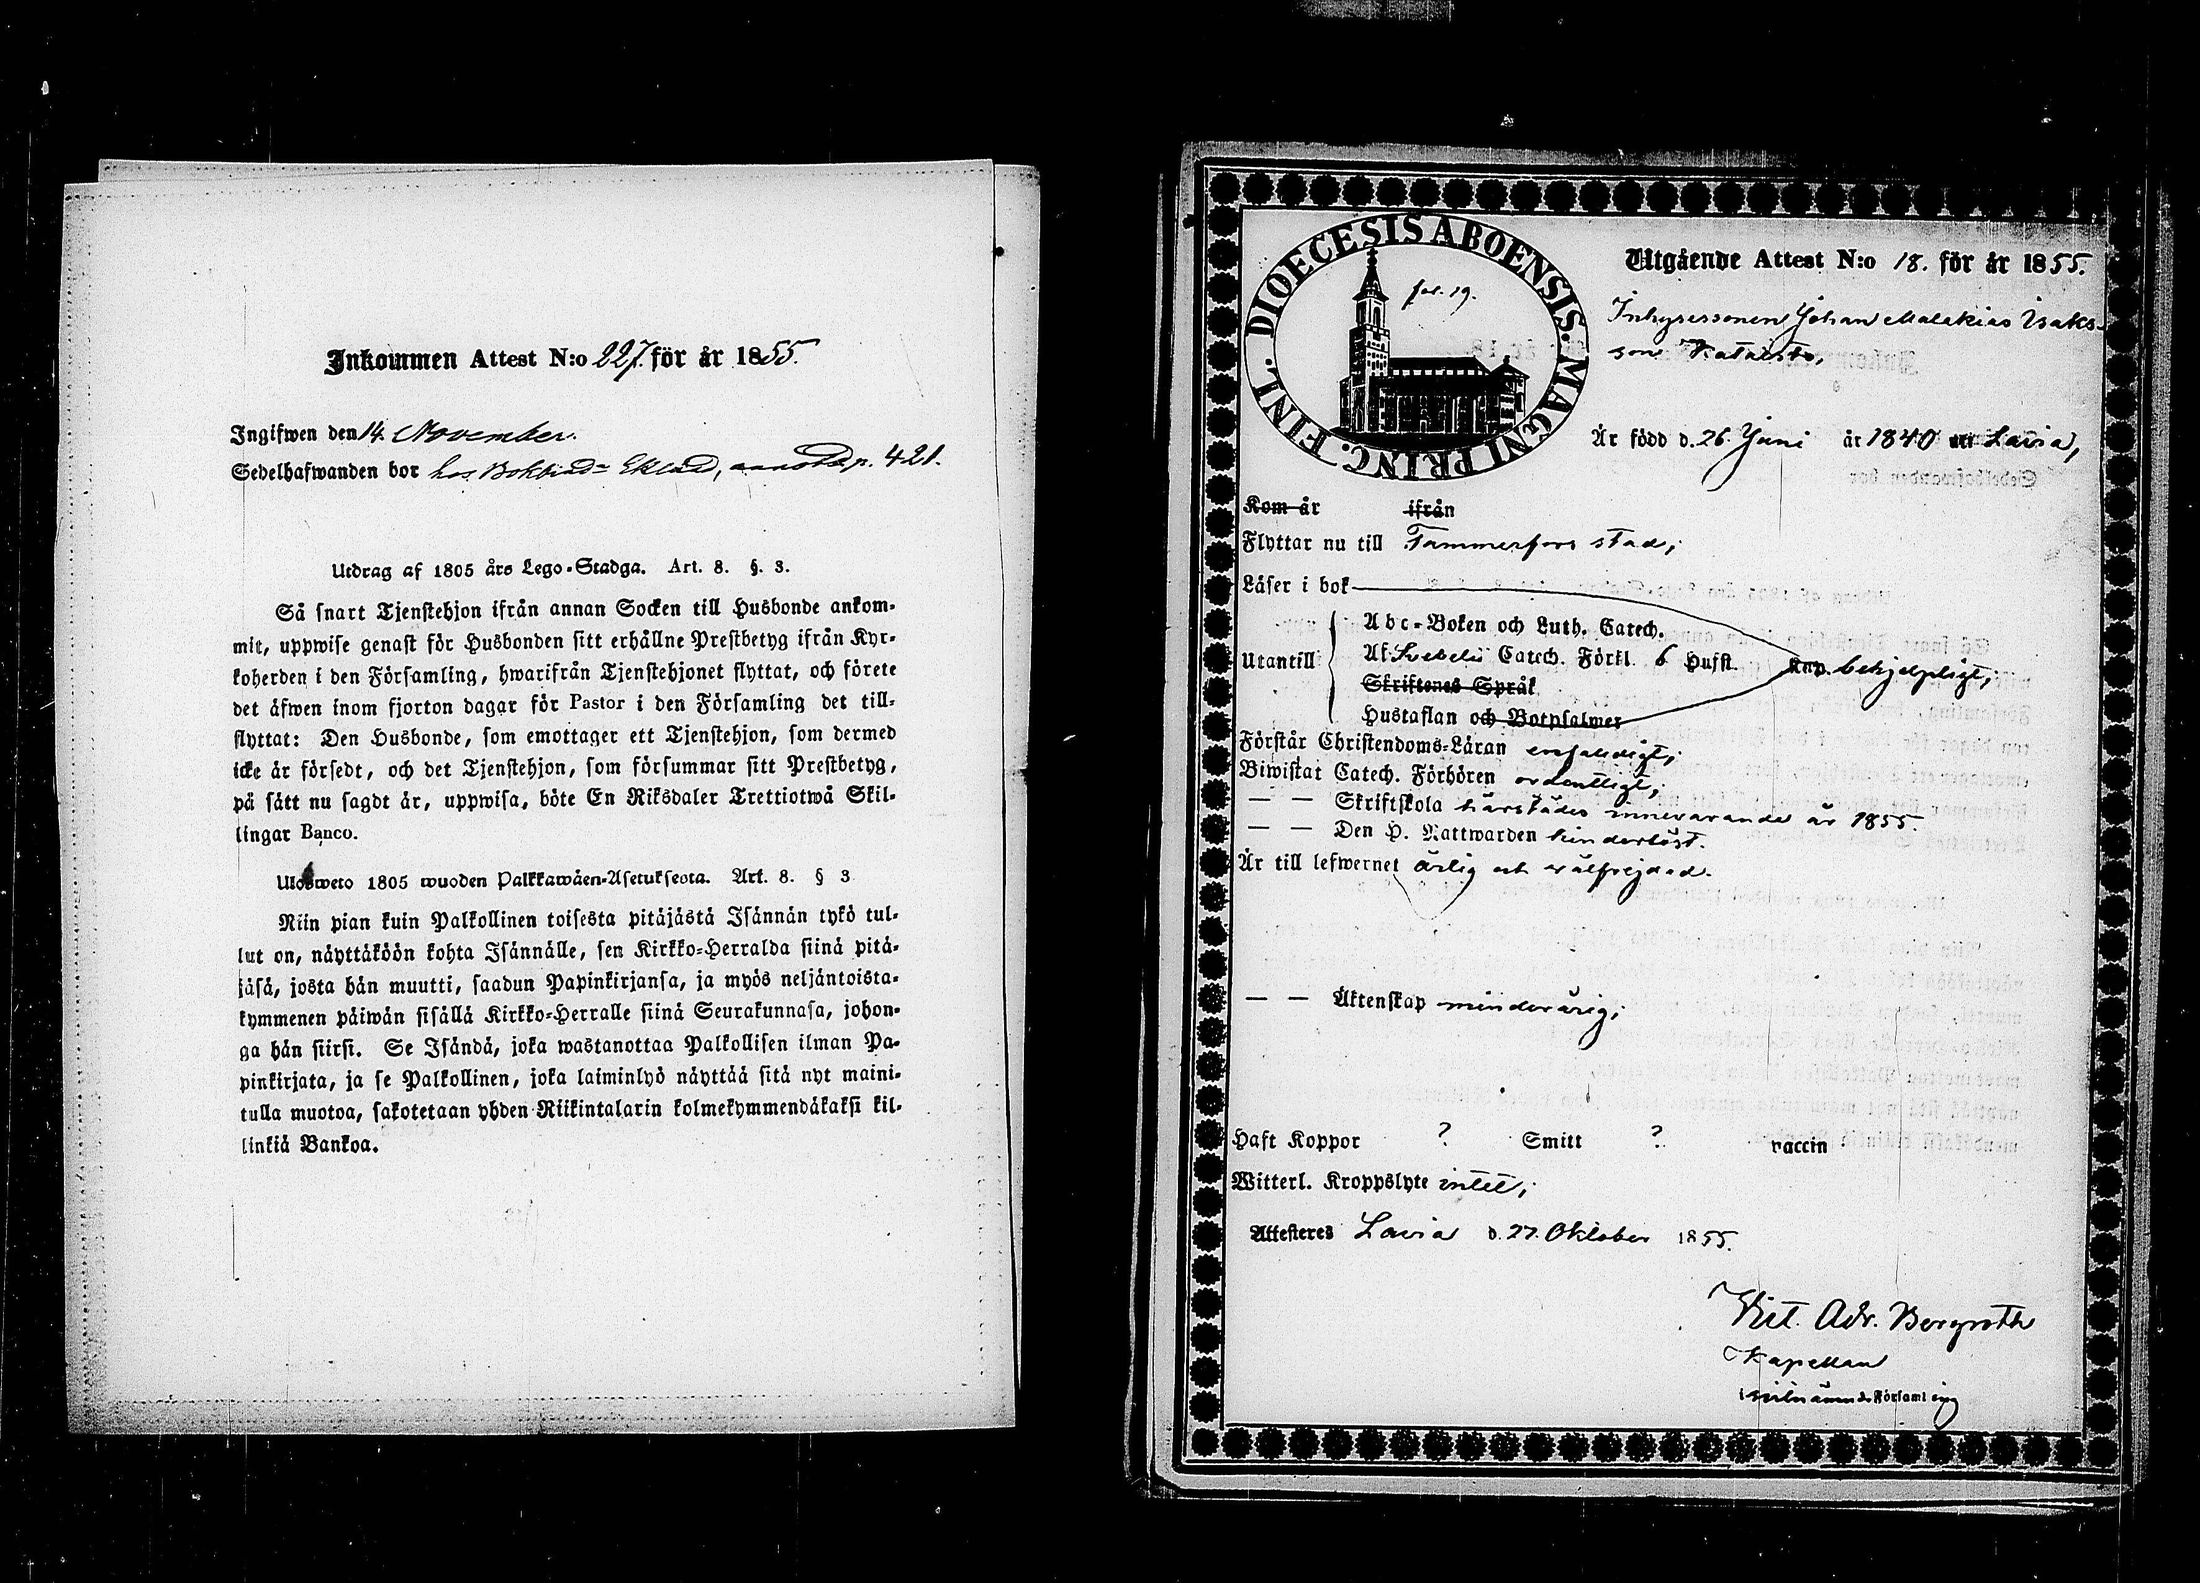 Inkommen Attest N:o 227. för år 1855.
Ingifwen den 14. November.
Sedelhafwanden bor hos Bokbind= Eklund, annot. p. 421.
Utdrag af 1805 års Lego-Stadga. Art. 8. §. 3.
Så snart Tjenstehjon ifrån annan Socken till Husbonde ankom-
mit, uppwise genast för Husbonden sitt erhållne Prestbetyg ifrån Kyr-
koherden i den Församling, hwarifrån Tjenstehjonet flyttat, och förete
det äfwen inom fjorton dagar för Pastor i den Församling det till-
flyttat: Den Husbonde, som emottager ett Tjenstehjon, som dermed
icke är försedt, och det Tjenstehjon, som försummar sitt Prestbetyg,
på sätt nu sagdt är, uppwisa, böte En Riksdaler Trettiotwå Skil-
lingar Banco.
Ulosweto 1805 wuoden Palkkawäen-Asetuksesta. Art. 8. § 3
Niin pian kuin Palkollinen toisesta pitäjästä Isännän tykö tul-
lut on, näyttäköön kohta Isännälle, sen Kirkko-Herralda siinä pitä-
jäsä, josta hän muutti, saadun Papinkirjansa, ja myös neljäntoista-
kymmenen päiwän sisällä Kirkko-Herralle siinä Seurakunnasa, johon-
ga hän siirsi. Se Isändä, joka wastanottaa Palkollisen ilman Pa-
pinkirjata, ja se Palkollinen, joka laiminlyö näyttää sitä nyt maini-
tulla muotoa, sakotetaan yhden Riikintalarin kolmekymmendäkaksi kil-
linkiä Bankoa.
DIOECESIS ABOENSIS. MAGNI PRINC. FINL.
fol. 19.
Utgående Attest N:o 18. för år 1855.
Inhysessonen Johan Malakias Isaks-
son Kataisto,
Är född d. 26. Juni år 1840 i Lavia,
Kom år ifrån
Flyttar nu till Tammerfors stad;
Läser i bok
Utantill
Abc-Boken och Luth. Catech.
Af Svebelii Catech. Förkl. 6 Hufst.
Skriftenes Språk
Hustaflan och Botpsalmer
behjelpligt;
Förstår Christendoms-Läran enfaldigt;
Biwistat Catech. Förhören ordentligt;
— — Skriftskola härstädes innevarande år 1855.
— — Den H. Nattwarden hinderlöst.
Är till lefwernet ärlig och välfrejdad.
— — Äktenskap minderårig;
Haft Koppor ? Smitt ? vaccin
Witterl. Kroppslyte intet;
Attesteres Lavia d. 27. Oktober 1855.
Vict. Adr. Bergroth
Kapellan
i bemälde Församling